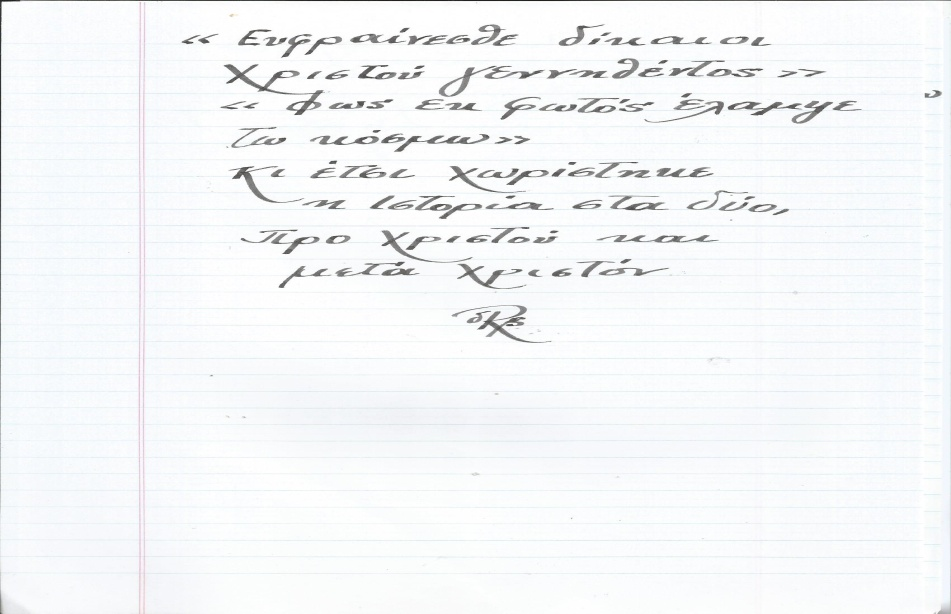 « Ευφραίνεσθε δίκαιοι
Χριστού γεννηθέντος »
« Φως εκ φωτός έλαμψε
τω κόσμω »
Κι έτσι χωρίστηκε
η Ιστορία στα δύο,
προ Χριστού και
μετά Χριστόν